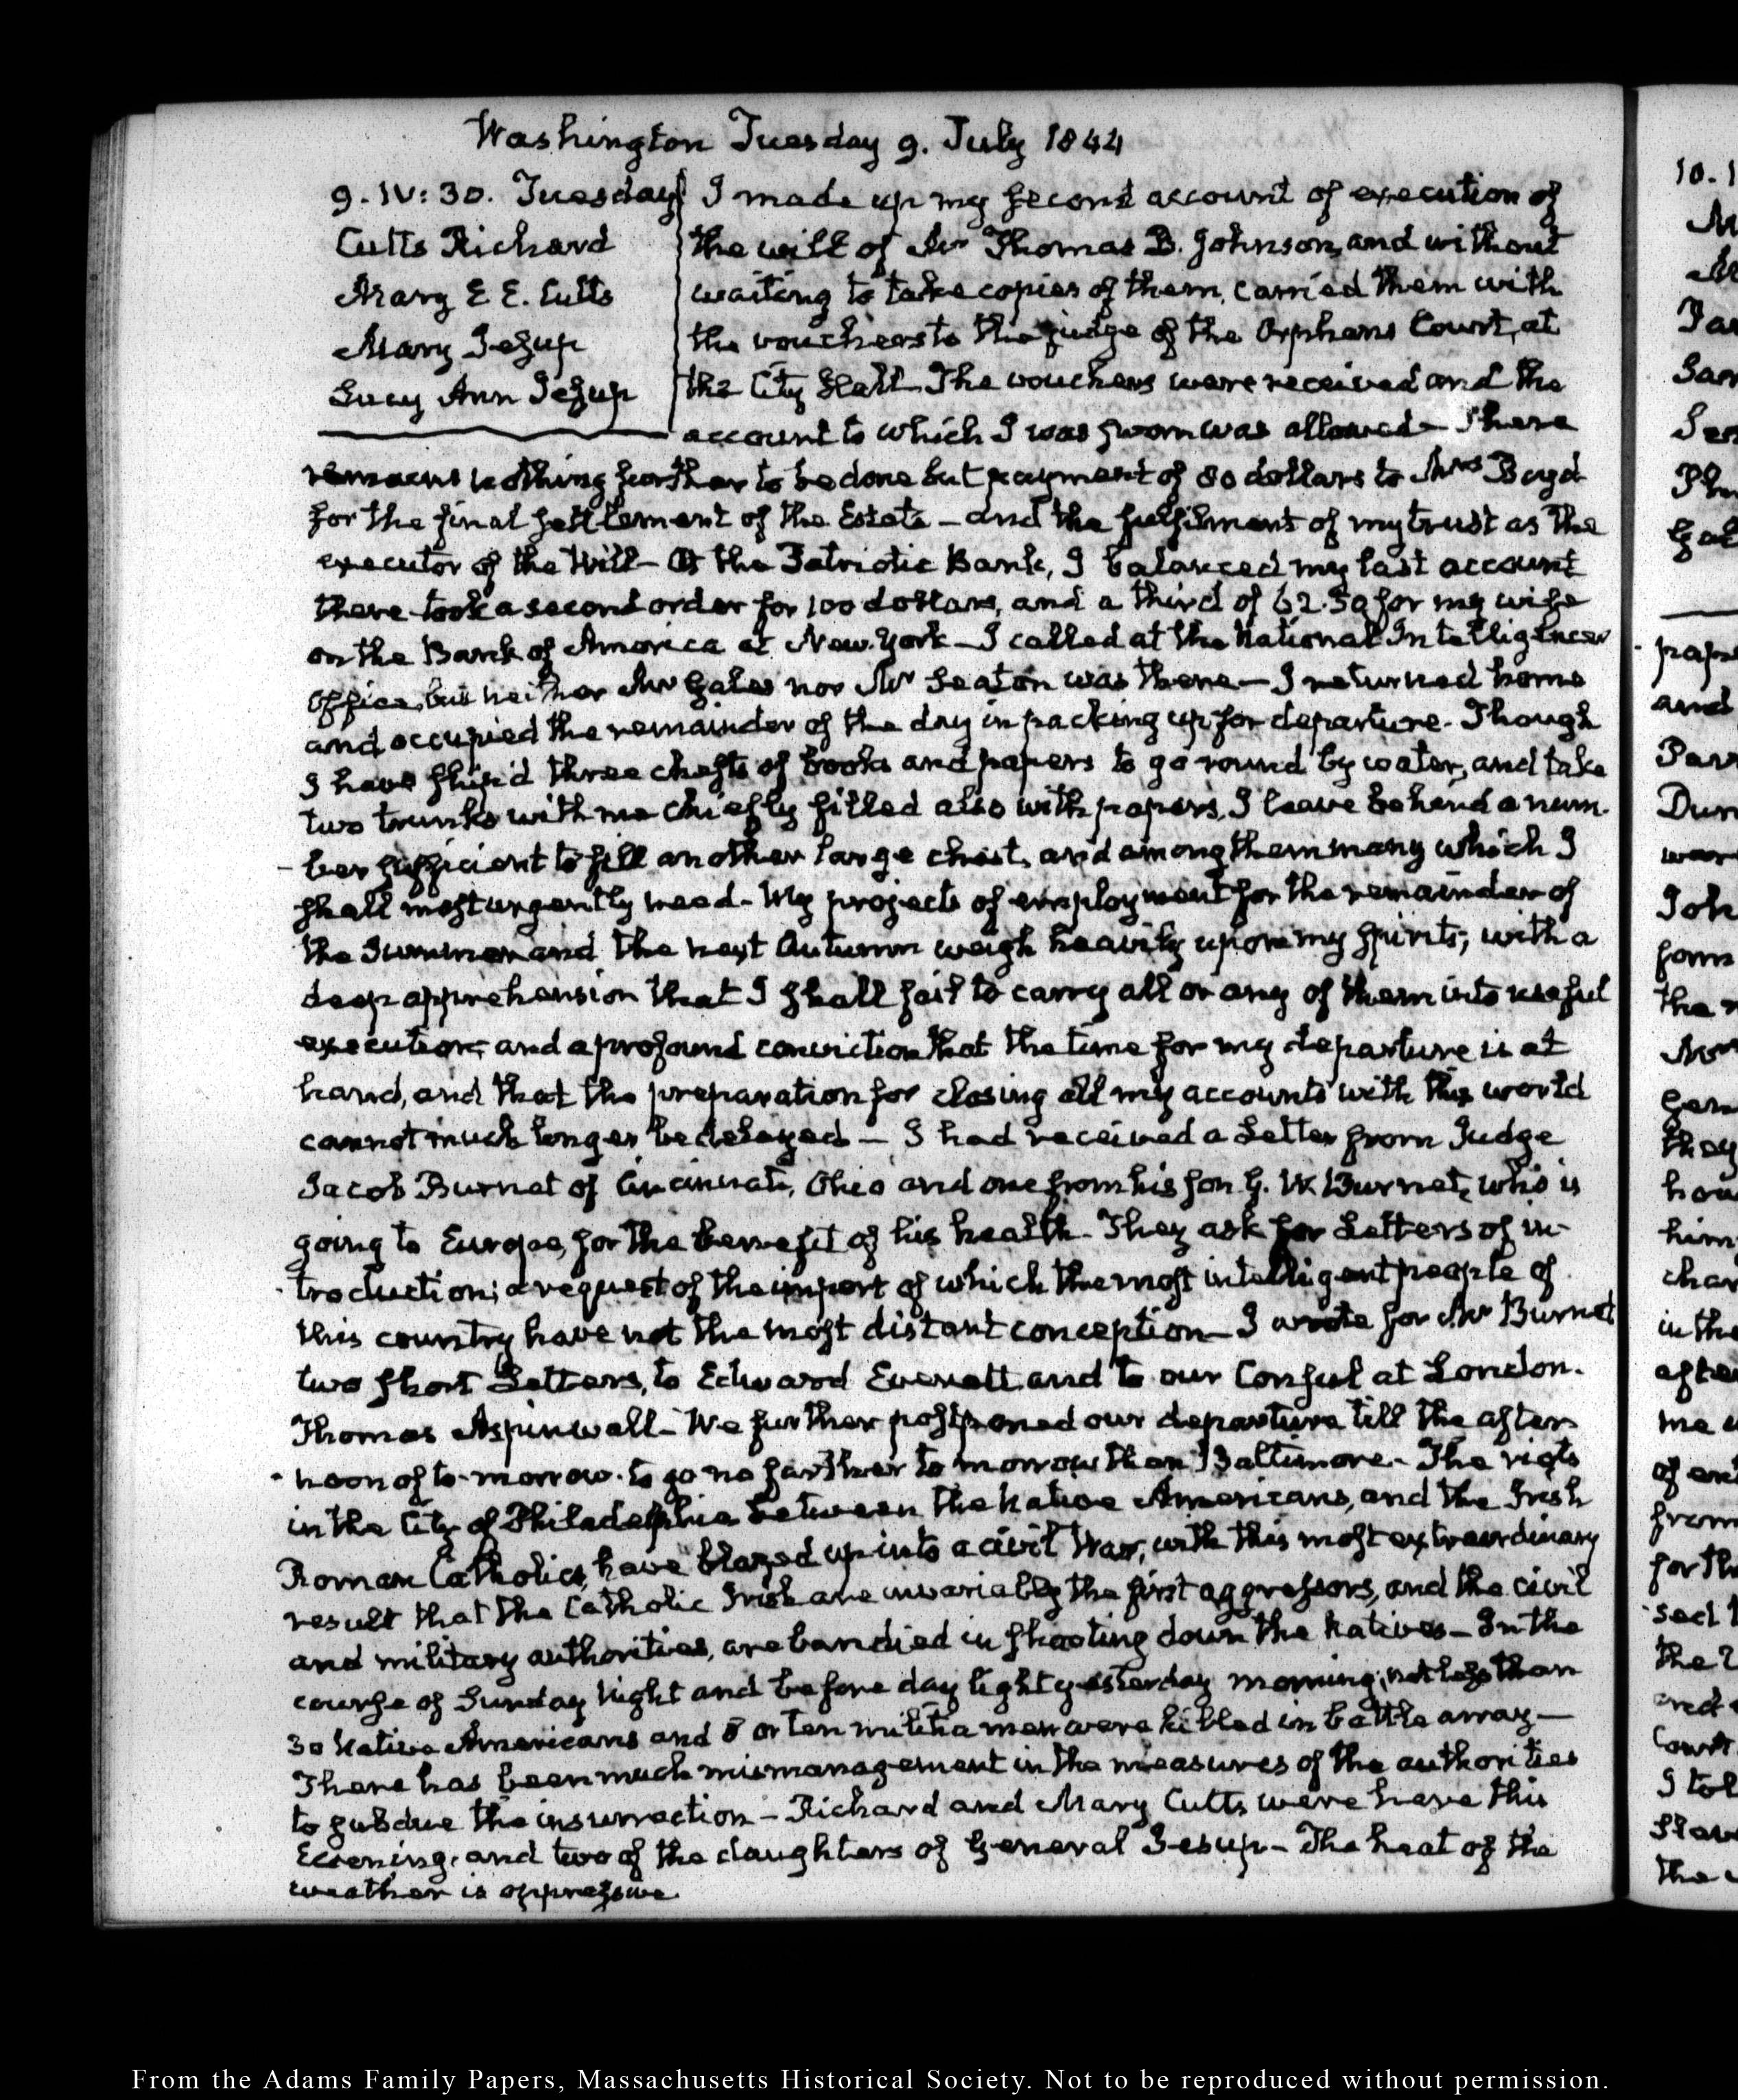 Washington Tuesday 9. July 1844
9. IV: 30. Tuesday
Cutts Richard
Mary E E. Cutts
Mary Jesup
Lucy Ann Jesup
I made up my second account of execution of
the will of Mr Thomas B. Johnson, and without
waiting to take copies of them, carried them with
the vouchers to the judge of the Orphans Court, at
the City Hall. The vouchers were received and the
account to which I was sworn was allowed - There
remains nothing further to be done but payment of 80 dollars to Mrs Boyd
for the final settlement of the Estate - and the fulfilment of my trust as the
executor of the Will - At the Patriotic Bank, I balanced my last account
there took a second order for 100 dollars, and a third of 62.50 for my wife
on the Bank of America at New. York - I called at the National Intelligencer
Office, but neither Mr Gales nor Mr Seaton was there - I returned home
and occupied the remainder of the day in packing up for departure. Though
I have ship'd three chests of books and papers to go round by water, and take
two trunks with me chiefly filled also with papers, I leave behind a num-
-ber sufficient to fill another large chest, and among them many which I
shall most urgently need - My projects of employment for the remainder of
the Summer and the next Autumn weigh heavily upon my spirits; with a
deep apprehension that I shall fail to carry all or any of them into useful
execution; and a profound conviction that the time for my departure is at
hand, and that the preparation for closing all my accounts with this world
cannot much longer be delayed - I had received a Letter from Judge
Jacob Burnet of Cincinnati, Ohio and one from his son G. W. Burnet, who is
going to Europe, for the benefit of his health - They ask for Letters of in-
-troduction; a request of the import of which the most intelligent people of
this country have not the most distant conception - I wrote for Mr Burnet
two short Letters, to Edward Everett and to our Consul at London.
Thomas Aspinwall - We further postponed our departure till the after-
-noon of to-morrow. to go no farther to morrow than Baltimore - The riots
in the City of Philadelphia between the Native Americans, and the Irish
Roman Catholics, have blazed up into a civil War, with this most extraordinary
result that the Catholic Irish are invariably the first aggressors, and the civil
and military authorities, are bandied in shooting down the Natives - In the
course of Sunday Night and before day light yesterday morning, not less than
30 Native Americans and 8 or ten militia men were killed in battle array -
There has been much mismanagement in the measures of the authorities
to subdue the insurrection - Richard and Mary Cutts were here this
Evening, and two of the daughters of General Jesup - The heat of the
weather is oppressive
From the Adams Family Papers, Massachusetts Historical Society. Not to be reproduced without permission.